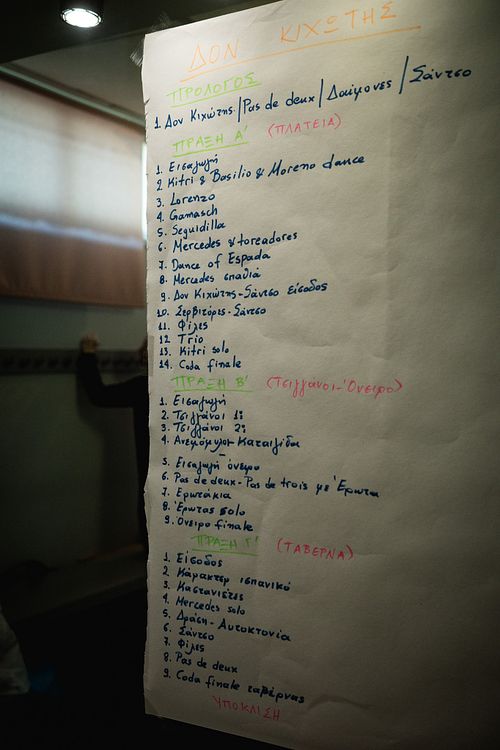 ΔΟΝ ΚΙΧΩΤΗΣ
ΠΡΟΛΟΓΟΣ
1. Δον Κιχώτης/Pas de deux/Δαίμονες/Σάντσο
ΠΡΑΞΗ Α' (ΠΛΑΤΕΙΑ)
1. Εισαγωγή
2. Kitri & Basilio & Moreno dance
3. Lorenzo
4. Gamasch
5. Seguidilla
6. Mercedes & toreadores
7. Dance of Espada
8. Mercedes σπαθιά
9. Δον Κιχώτης-Σάντσο είσοδος
10. Σερβιτόρες-Σάντσο
11. Φίλες
12 Trio
13. Kitri solo
14. Coda finale
ΠΡΑΞΗ Β' (Τσιγγάνοι-Όνειρο)
1. Εισαγωγή
2. Τσιγγάνοι 1:
3. Τσιγγάνοι 2:
4. Ανεμόμυλοι-Καταιγίδα
5. Εισαγωγή όνειρο
6. Pas de deux-Pas de trois με Έρωτα
7. Ερωτάκια
8. Έρωτας solo
9. Όνειρο finale
ΠΡΑΞΗ Γ' (ΤΑΒΕΡΝΑ)
1. Είσοδος
2. Κάρακτερ ισπανικό
3. Καστανιέτες
4. Mercedes solo
5. Δράση-Αυτοκτονία
6. Σάντσο
7. Φίλες
8. Pas de deux
9. Coda finale ταβέρνας
ΥΠΟΚΛΙΣΗ